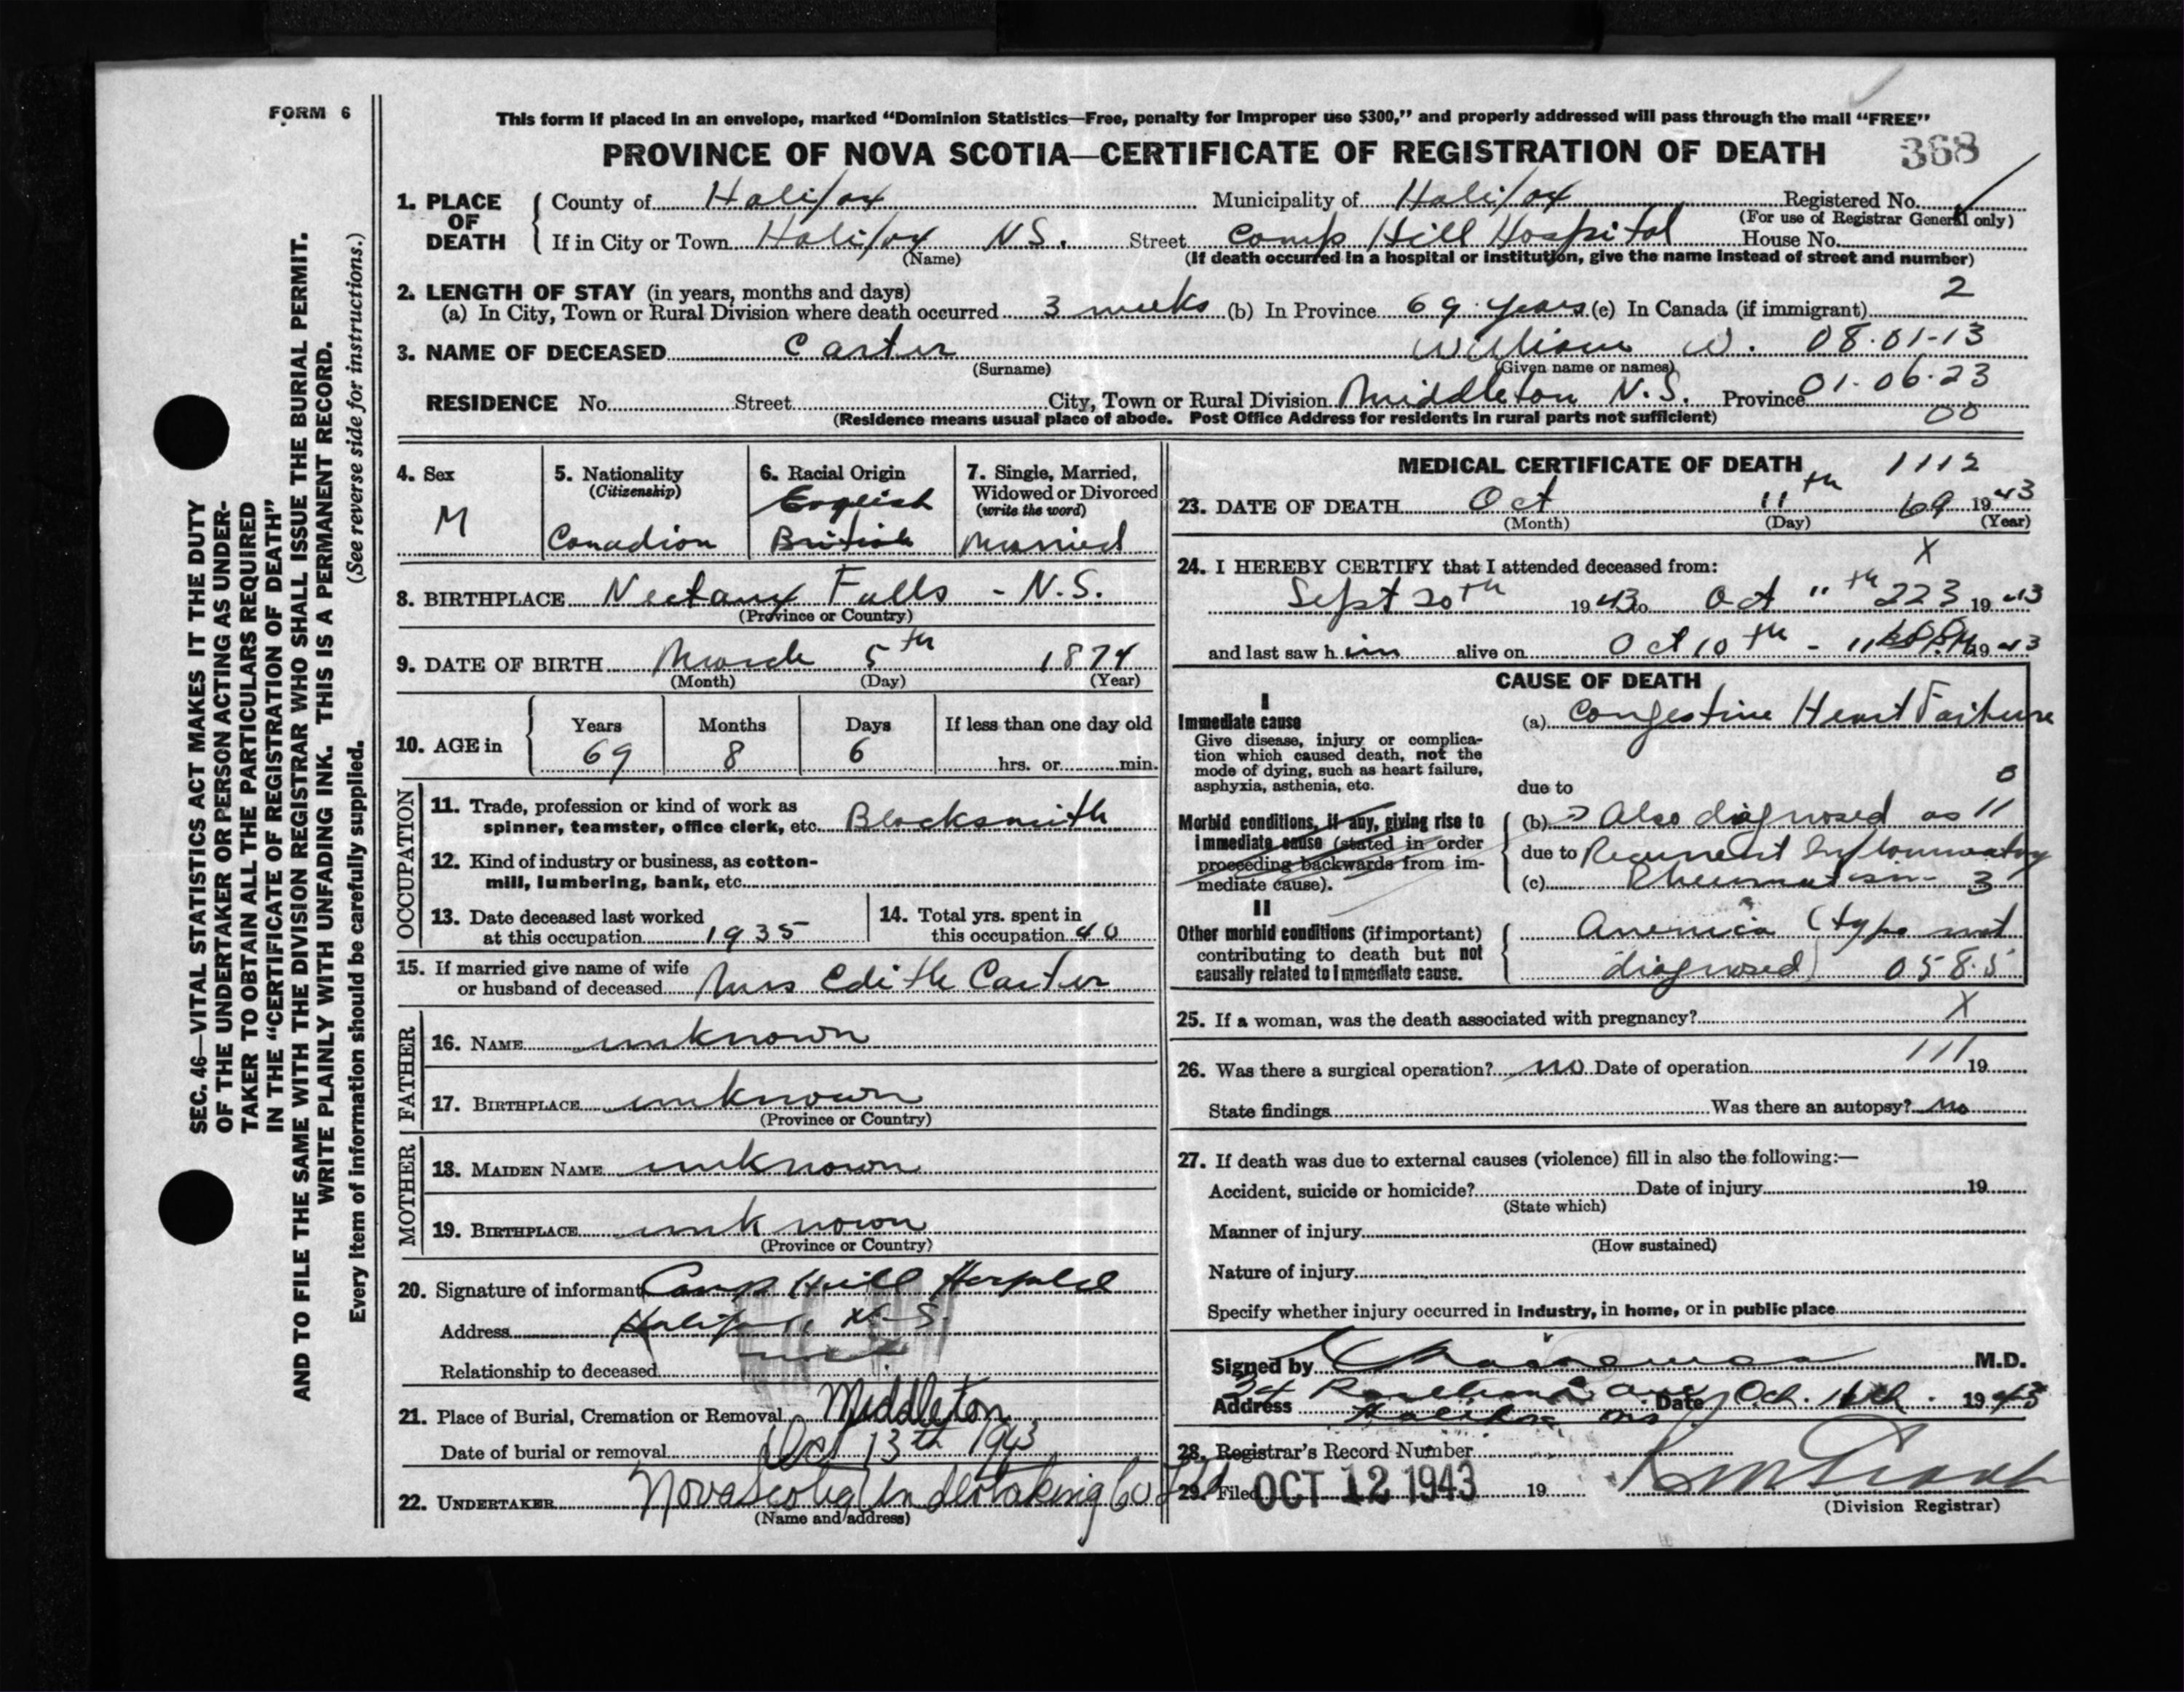 FORM 6
This form if placed in an envelope, marked “Dominion Statistics—Free, penalty for improper use $300,” and properly addressed will pass through the mail “FREE”
PROVINCE OF NOVA SCOTIA—CERTIFICATE OF REGISTRATION OF DEATH 368
1. PLACE OF DEATH
County of Halifax Municipality of Halifax Registered No.
(For use of Registrar General only)
If in City or Town Halifax N.S. Street Camp Hill Hospital House No.
(Name) (If death occurred in a hospital or institution, give the name instead of street and number)
2. LENGTH OF STAY (in years, months and days) 2
(a) In City, Town or Rural Division where death occurred 3 weeks (b) In Province 69 years (c) In Canada (if immigrant)
3. NAME OF DECEASED Carter William W. 08.01-13
(Surname) (Given name or names)
RESIDENCE No. Street City, Town or Rural Division Middleton N.S. Province 01.06.23
(Residence means usual place of abode. Post Office Address for residents in rural parts not sufficient) 00
4. Sex
M
5. Nationality
(Citizenship)
Canadian
6. Racial Origin
English
British
7. Single, Married,
Widowed or Divorced
(write the word)
Married
8. BIRTHPLACE Nictaux Falls - N.S.
(Province or Country)
9. DATE OF BIRTH March 5th 1874
(Month) (Day) (Year)
10. AGE in
Years Months Days If less than one day old
69 8 6 hrs. or min.
OCCUPATION
11. Trade, profession or kind of work as
spinner, teamster, office clerk, etc. Blacksmith
12. Kind of industry or business, as cotton-
mill, lumbering, bank, etc.
13. Date deceased last worked
at this occupation 1935
14. Total yrs. spent in
this occupation 40
15. If married give name of wife
or husband of deceased Mrs Edith Carter
FATHER
16. NAME unknown
17. BIRTHPLACE unknown
(Province or Country)
MOTHER
18. MAIDEN NAME unknown
19. BIRTHPLACE unknown
(Province or Country)
20. Signature of informant Camp Hill Hospital
Address Halifax N.S.
Relationship to deceased
21. Place of Burial, Cremation or Removal Middleton
Date of burial or removal Oct 13th 1943
22. UNDERTAKER Nova Scotia Undertaking Co Ltd
(Name and address)
MEDICAL CERTIFICATE OF DEATH 1112
23. DATE OF DEATH Oct 11th 69 1943
(Month) (Day) (Year)
24. I HEREBY CERTIFY that I attended deceased from: X
Sept 20th 1943 to Oct 11th 223 1943
and last saw him alive on Oct 10th - 1943
CAUSE OF DEATH
I
Immediate cause
Give disease, injury or complica-
tion which caused death, not the
mode of dying, such as heart failure,
asphyxia, asthenia, etc.
(a) Congestive Heart Failure
due to
Morbid conditions, if any, giving rise to
immediate cause (stated in order
proceeding backwards from im-
mediate cause).
(b) Also diagnosed as
due to Recurrent Inflammatory
(c) Rheumatism 3
II
Other morbid conditions (if important)
contributing to death but not
causally related to immediate cause.
Anemia (type not
diagnosed) 058.5
25. If a woman, was the death associated with pregnancy? X
26. Was there a surgical operation? no Date of operation 111 19
State findings Was there an autopsy? no
27. If death was due to external causes (violence) fill in also the following:—
Accident, suicide or homicide? Date of injury 19
(State which)
Manner of injury
(How sustained)
Nature of injury
Specify whether injury occurred in industry, in home, or in public place
Signed by M.D.
Address Halifax NS Date Oct. 11th 1943
28. Registrar's Record Number
29. Filed OCT 12 1943 19
(Division Registrar)
SEC. 46—VITAL STATISTICS ACT MAKES IT THE DUTY
OF THE UNDERTAKER OR PERSON ACTING AS UNDER-
TAKER TO OBTAIN ALL THE PARTICULARS REQUIRED
IN THE “CERTIFICATE OF REGISTRATION OF DEATH”
AND TO FILE THE SAME WITH THE DIVISION REGISTRAR WHO SHALL ISSUE THE BURIAL PERMIT.
WRITE PLAINLY WITH UNFADING INK. THIS IS A PERMANENT RECORD.
Every item of information should be carefully supplied. (See reverse side for instructions.)